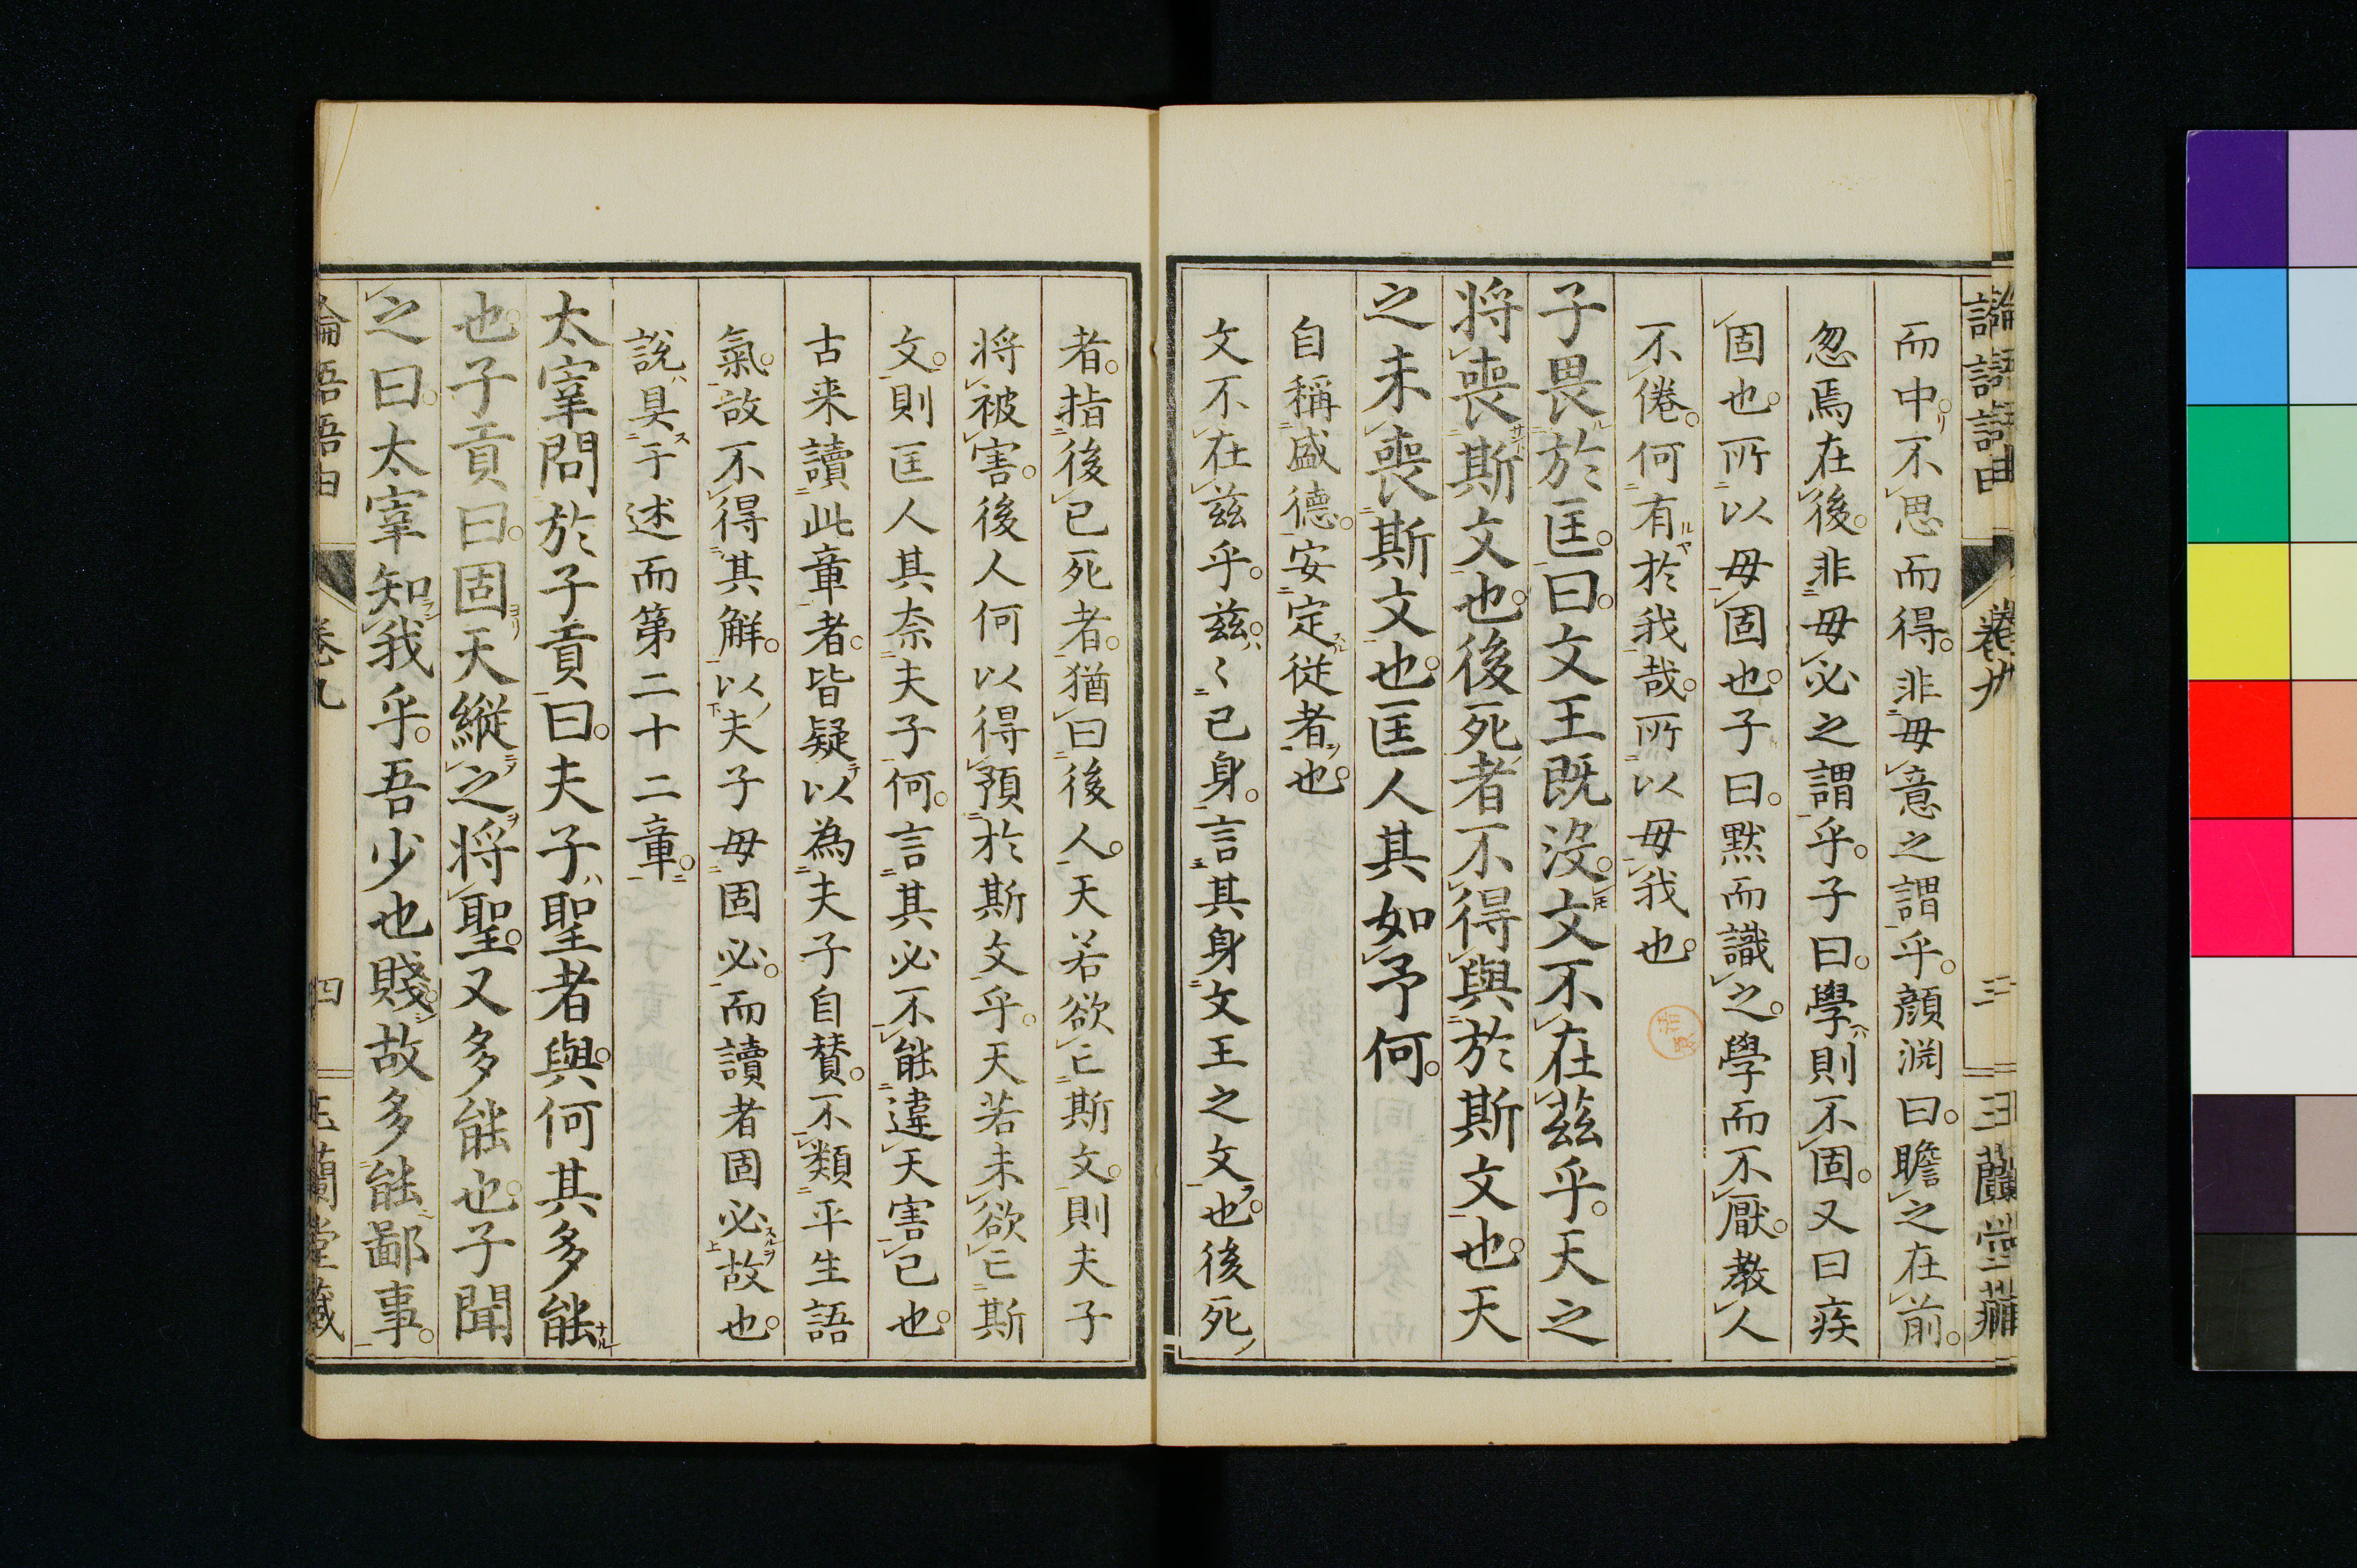 而中。不思而得。非毋意之謂乎。顔淵曰。瞻之在前。
忽焉在後。非毋必之謂乎。子曰。學則不固。又曰疾
固也。所以毋固也。子曰。黙而識之。學而不厭。教人
不倦。何有於我哉。所以毋我也。
子畏於匡。曰。文王既没。文不在茲乎。天之
将喪斯文也。後死者不得與於斯文也。天
之未喪斯文也。匡人其如予何。
自稱盛德。安定従者也。
文不在茲乎。茲〻己身。言其身文王之文也。後死
者。指後已死者。猶曰後人。天若欲亡斯文。則夫子
将被害。後人何以得預於斯文乎。天若未欲亡斯
文。則匡人其奈夫子何。言其必不能違天害己也。
古来讀此章者。皆疑以為夫子自賛。不類平生語
氣。故不得其解。以夫子毋固必。而讀者固必故也。
説具于述而第二十二章。
太宰問於子貢曰。夫子聖者與。何其多能
也。子貢曰。固天縦之将聖。又多能也。子聞
之曰。太宰知我乎。吾少也賤。故多能鄙事。
論語語由
卷九
四